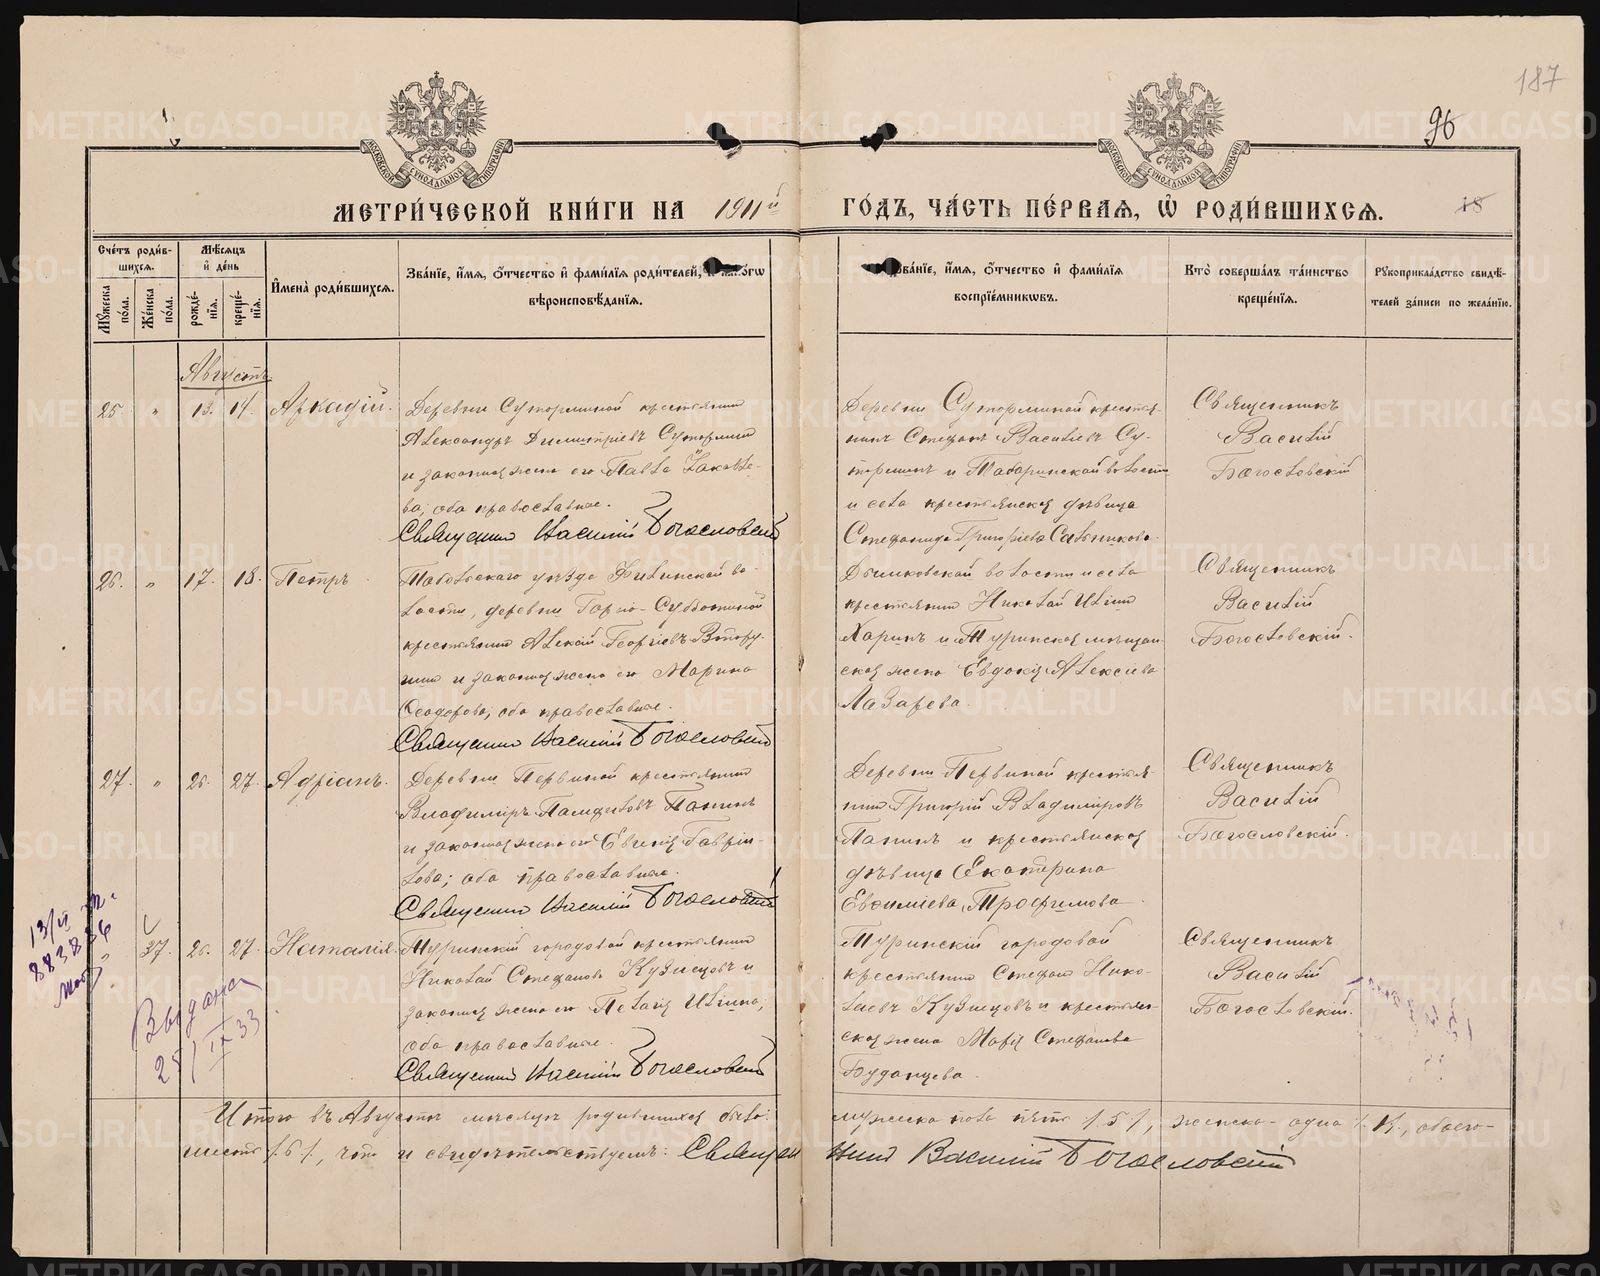 187
96
МЕТРИ́ЧЕСКОЙ КНИ́ГИ НА 1911й ГО́ДЪ, ЧА́СТЬ ПЕ́РВАЯ, Ѡ҆ РОДИ́ВШИХСЯ.
18
Сче́тъ роди́в-
шихся.
Му́жеска по́ла.
Же́нска по́ла.
Мѣ́сяцъ и де́нь
рожде́нїя.
креще́нїя.
И҆мена̀ роди́вшихся.
Зва́нїе, и҆́мя, ѻ҆́тчество и҆ фами́лїя роди́телей,
вѣроисповѣ́данїя.
Зва́нїе, и҆́мя, ѻ҆́тчество и҆ фами́лїя
воспрїе́мникωвъ.
Кто̀ соверша́лъ та́инство
креще́нїя.
Рꙋкоприкла́дство свидѣ́-
телей за́писи по жела́нїю.
Августъ
25. " 13. 14. Аркадій.
Деревни Сутормыной крестьянин
Александръ Димитріевъ Сутормин
и законная жена его Павла Іаковле-
ва, оба православные.
Священник Василій Богословский
Деревни Сутормыной крестья-
нинъ Стефанъ Васильевъ Су-
торминъ и
и села крестьянская дѣвица
Стефанида Григорьева Сальникова.
Священникъ
Василій
Богословскій
26. " 17. 18. Петръ.
Тобольскаго уѣзда во-
лости, деревни Горно-Субботиной
крестьянин Алексій Георгіевъ
и законная жена его Марина
Ѳеодорова, оба православные.
Священник Василій Богословский
волости и села
крестьянин Николай Ильин
Харинъ и Туринская мещан-
ская жена Евдокія Алексіева
Лазарева.
Священникъ
Василій
Богословскій.
27. " 26. 27. Адріанъ.
Деревни Первиной крестьянин
Владиміръ Памфиловъ Панинъ
и законная жена его Евгенія Гаврiи-
лова; оба православные.
Священник Василій Богословский
Деревни Первиной крестья-
нин Григорій Владиміровъ
Панинъ и крестьянская
дѣвица Екатерина
Евѳиміева Трофимова.
Священникъ
Василій
Богословскій.
" 37. 26. 27. Наталія.
Туринскій городовой крестьянин
Николай Стефановъ Кузнецовъ и
законная жена его Пелагія Ильина,
оба православные.
Священник Василій Богословский
Туринскій городовой
крестьянин Стефан Нико-
лаевъ Кузнецовъ и крестьян-
ская жена Марія Стефанова
Буданцева.
Священникъ
Василій
Богословскій.
883836
Выдана
25/IX 33
Итого въ Августѣ мѣсяцѣ родившихся было: мужска пола пять /5/, женска - одна /1/, обоего -
шесть /6/, что и свидѣтельствуемъ: Священник Василий Богословский